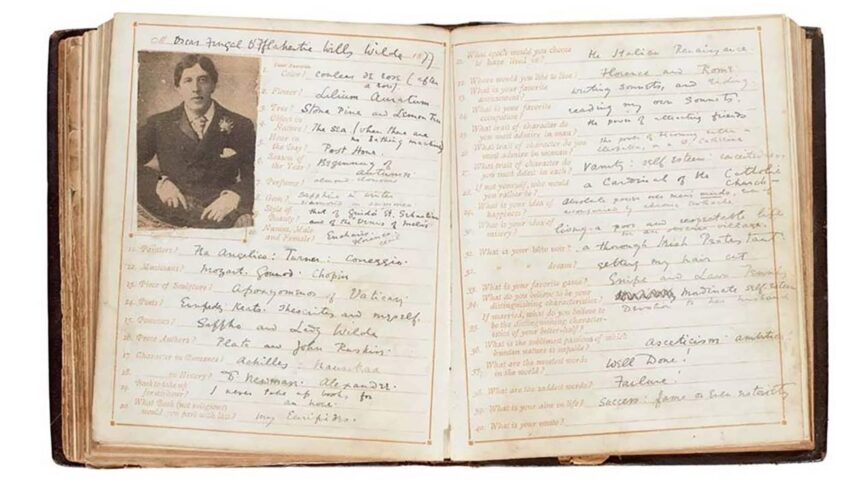 Oscar Fingal O'Flahertie Wills Wilde 1877
YOUR FAVORITE
1. Color? couleur de rose (after
a row).
2. Flower? Lilium Auratum
3. Tree? Stone Pine and Lemon Tree
4. Object in
Nature? The sea (when there are
no bathing machines)
5. Hour in
the Day? Post Hour.
6. Season of
the Year? Beginning of
autumn
7. Perfume? almond
8. Gem? sapphire in winter
diamond in summer
9. Style of
Beauty? that of Guido's St. Sebastian
and of the Venus of Melos
10. Names, Male
and Female? Eucharis
11. Painters? Fra Angelico: Turner: Correggio.
12. Musicians? Mozart. Gounod. Chopin
13. Piece of Sculpture? Apoxyomenos of Vatican.
14. Poets? Euripides: Keats: Theocritus and myself.
15. Poetesses? Sappho and Lady Wilde
16. Prose Authors? Plato and John Ruskin.
17. Character in Romance? Achilles: Nausikaa
18. in History? Dr Newman. Alexander.
19. Book to take up
for an hour? I never take up books for
an hour.
20. What Book (not religious)
would you part with last? my Euripides.
21. What epoch would you choose
to have lived in? the Italian Renaissance.
22. Where would you like to live? Florence and Rome
23. What is your favorite
amusement? writing sonnets, and riding.
24. What is your favorite
occupation? reading my own sonnets.
25. What trait of character do
you most admire in man? the power of attracting friends
26. What trait of character do
you most admire in woman? the power of becoming either a
Cleopatra, or a St Catherine
27. What trait of character do
you most detest in each? Vanity: self esteem: conceitedness
28. If not yourself, who would
you rather be? a Cardinal of the Catholic
Church
29. What is your idea of
happiness? absolute power over men's minds, even if
accompanied by chronic toothache
30. What is your idea of
misery? living a poor and respectable life
in an obscure village.
31. What is your bête noir? a thorough Irish Protestant
32. " " " dream? getting my hair cut
33. What is your favorite game? Snipe and Lawn Tennis
34. What do you believe to be your
distinguishing characteristics? Inordinate self esteem
35. If married, what do you believe to
be the distinguishing character-
istics of your better-half? Devotion to her husband
36. What is the sublimest passion of which
human nature is capable? Asceticism: ambition
37. What are the sweetest words
in the world? Well Done!
38. What are the saddest words? Failure!
39. What is your aim in life? Success: fame or even notoriety
40. What is your motto?